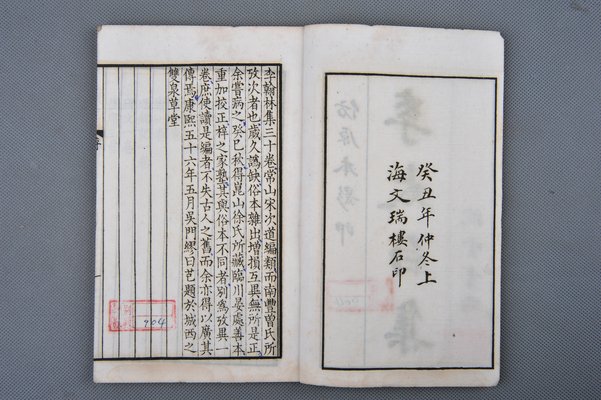 癸丑年仲冬上
海文瑞樓石印
李翰林集三十卷常山宋次道編類而南豐曾氏所
攷次者也歲久譌缺俗本雜出增損互異無所是正
余嘗病之癸巳秋得崑山徐氏所藏臨川晏處善本
重加校正梓之家塾其與俗本不同者別為攷異一
卷庶使讀是編者不失古人之舊而余亦得以廣其
傳焉康熙五十六年五月吳門繆曰芑題於城西之
雙泉草堂
904